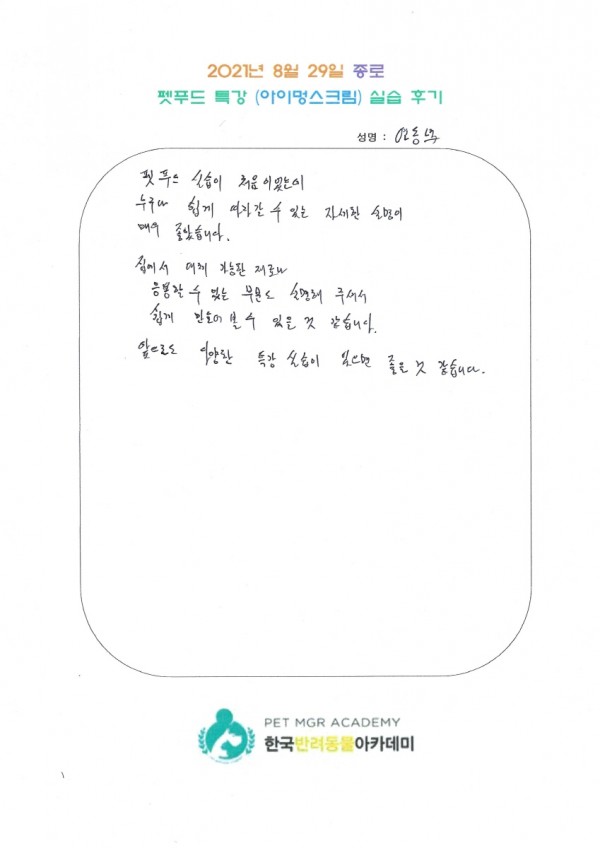 2021년 8월 29일 종로
펫푸드 특강 (아이멍스크림) 실습 후기
성명 :
펫푸드 실습이 처음이었는데
누구나 쉽게 따라갈 수 있는 자세한 설명이
매우 좋았습니다.
집에서 대체 가능한 재료나
응용할 수 있는 부분도 설명해 주셔서
쉽게 만들어 볼 수 있을 것 같습니다.
앞으로도 다양한 특강 실습이 있으면 좋을 것 같습니다.
PET MGR ACADEMY
한국반려동물아카데미